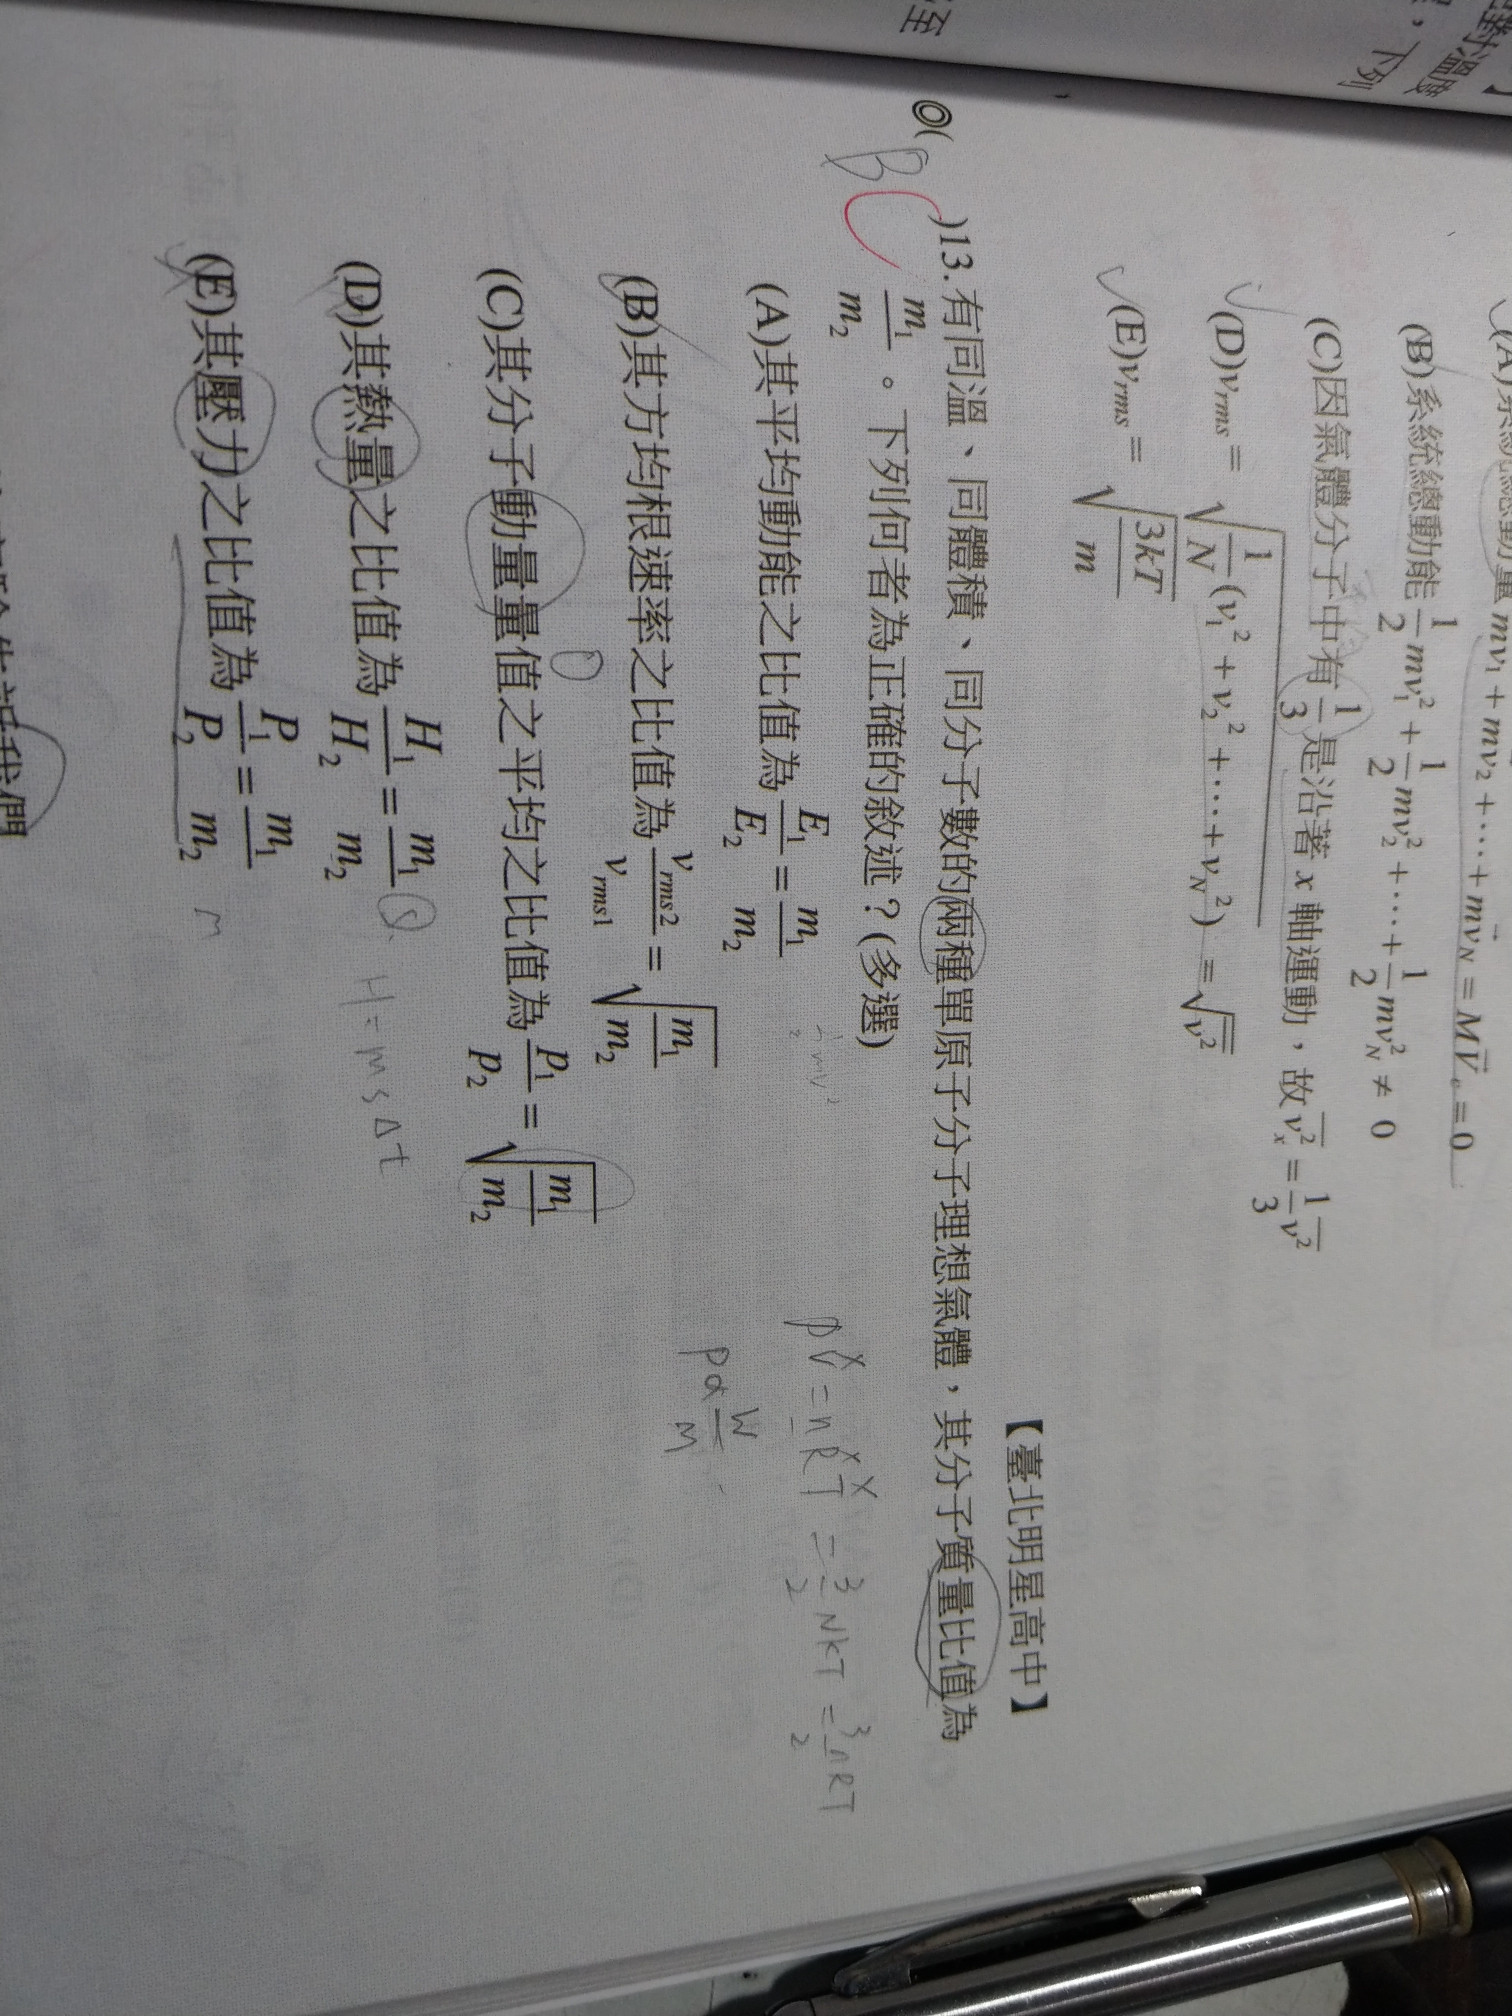 對溫度
，下列
至
mv₁ + mv₂ + ⋯ + mv_N = MV_c = 0
(B)系統總動能 1/2 mv₁² + 1/2 mv₂² + ⋯ + 1/2 mv_N² ≠ 0
(C)因氣體分子中有 1/3 是沿著 x 軸運動,故 v̄ₓ² = 1/3 v̄²
(D) v_rms = √(1/N (v₁² + v₂² + ⋯ + v_N²)) = √v̄²
(E) v_rms = √(3kT/m)
【臺北明星高中】
◎( BC )13. 有同溫、同體積、同分子數的兩種單原子分子理想氣體,其分子質量比值為
m₁/m₂ 。下列何者為正確的敘述?(多選)
(A)其平均動能之比值為 E₁/E₂ = m₁/m₂
(B)其方均根速率之比值為 v_rms2/v_rms1 = √(m₁/m₂)
(C)其分子動量量值之平均之比值為 p₁/p₂ = √(m₁/m₂)
(D)其熱量之比值為 H₁/H₂ = m₁/m₂
(E)其壓力之比值為 P₁/P₂ = m₁/m₂
1/2 mv²
PV = nRT = 3/2 NkT = 3/2 nRT
P α W/M
H = m s Δt
M
我們